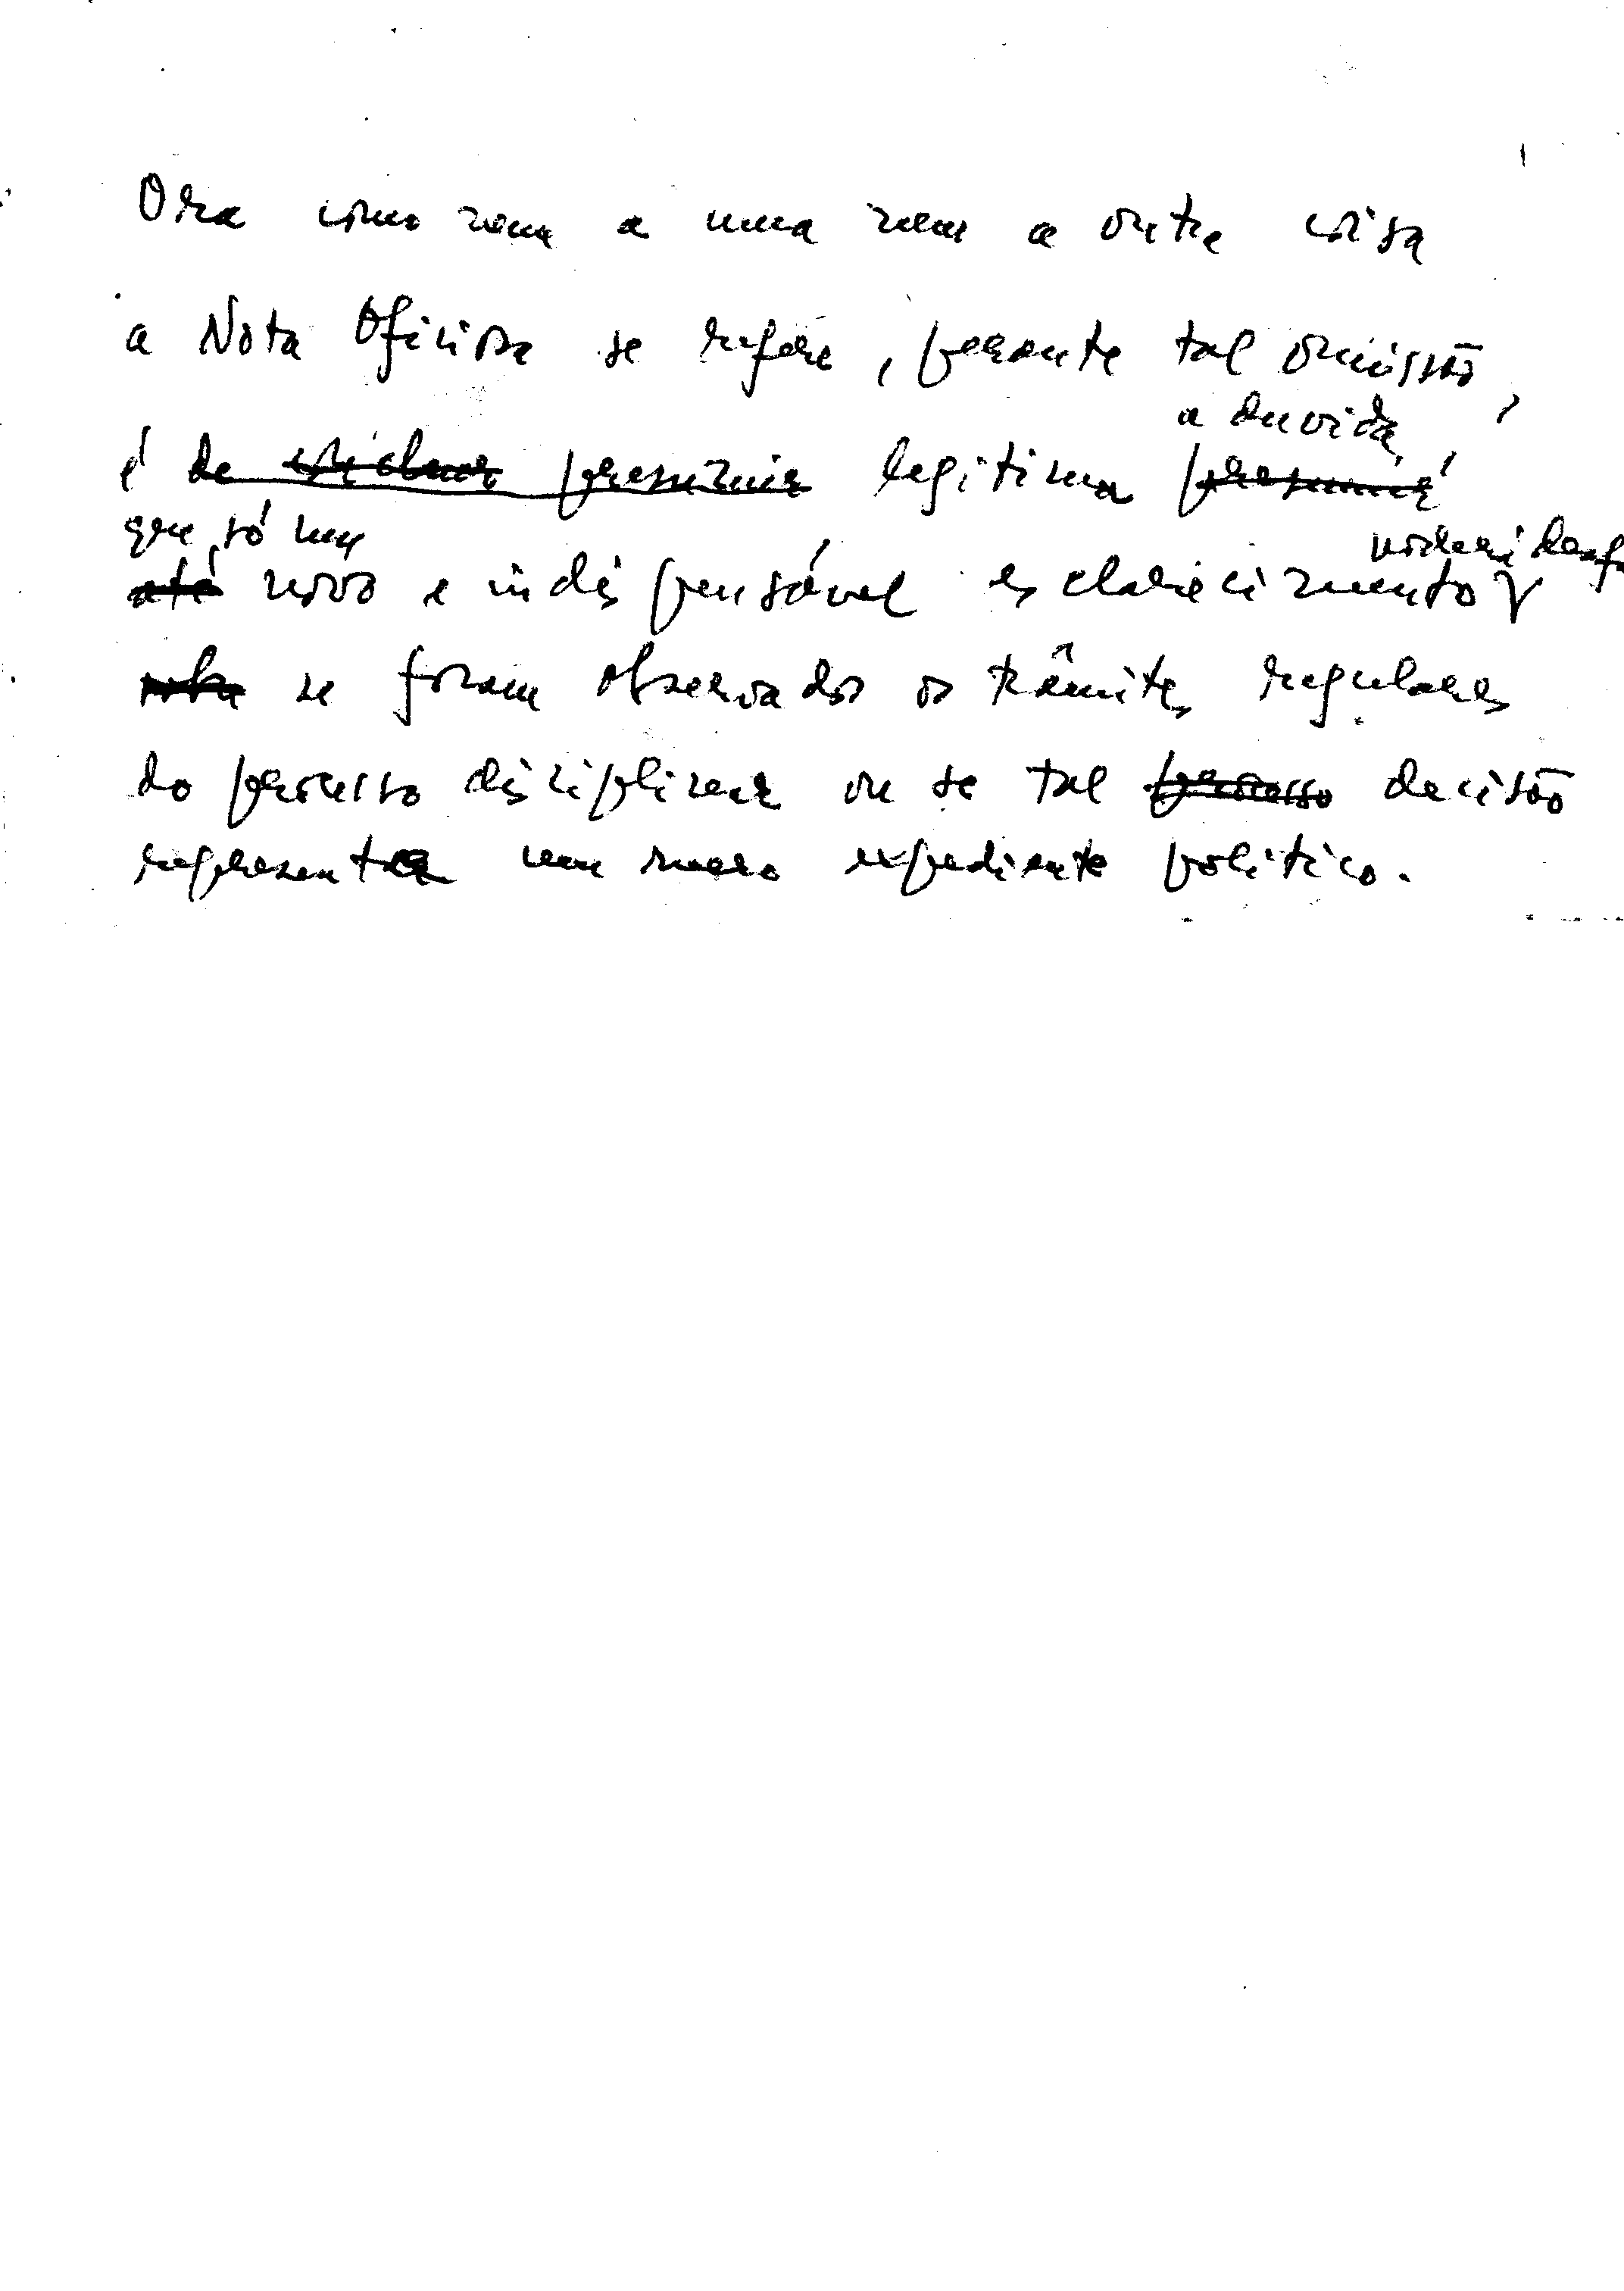 Ora como nem a uma nem a outra coisa
a Nota Oficiosa se refere, perante tal omissão,
a duvida,
é de presumir legitima presumir
que só um
poderá
até novo e indispensável esclarecimento
sobre se foram observados os trâmites regulares
do processo disciplinar ou se tal processo decisão
representa um mero expediente politico.